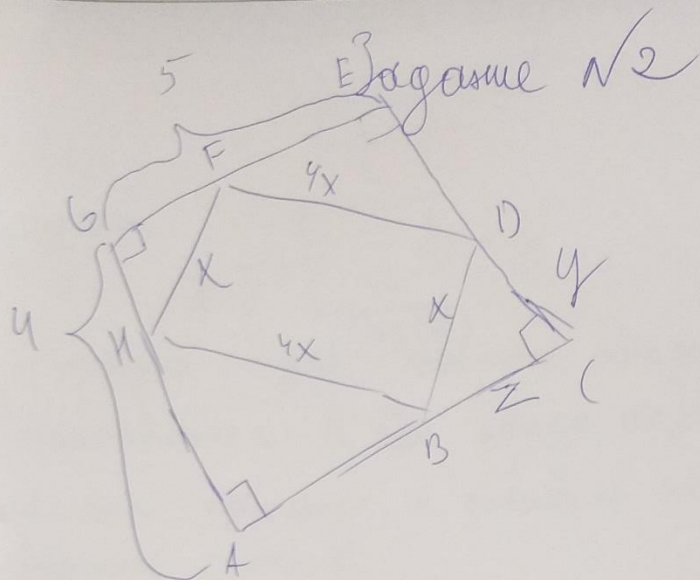 Задание №2
5
E
F
4x
G
D
x
y
4
H
x
4x
z
C
B
A